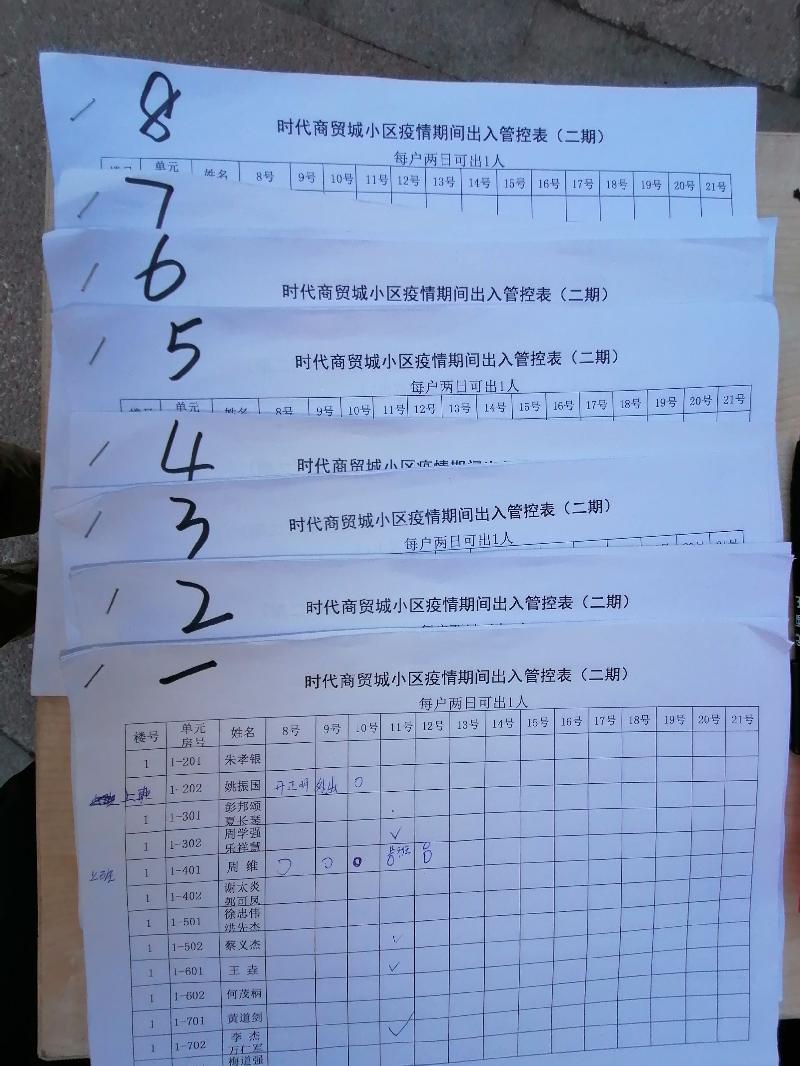 8
时代商贸城小区疫情期间出入管控表（二期）
每户两日可出1人
单元 姓名 8号 9号 10号 11号 12号 13号 14号 15号 16号 17号 18号 19号 20号 21号
7
6
时代商贸城小区疫情期间出入管控表（二期）
5
时代商贸城小区疫情期间出入管控表（二期）
每户两日可出1人
单元 姓名 8号 9号 10号 11号 12号 13号 14号 15号 16号 17号 18号 19号 20号 21号
4
时代商贸城小区疫情期间出入管控表（二期）
3
时代商贸城小区疫情期间出入管控表（二期）
每户两日可出1人
2
时代商贸城小区疫情期间出入管控表（二期）
一
时代商贸城小区疫情期间出入管控表（二期）
每户两日可出1人
楼号 单元房号 姓名 8号 9号 10号 11号 12号 13号 14号 15号 16号 17号 18号 19号 20号 21号
1 1-201 朱孝银
上班 1 1-202 姚振国 外出 ○
1 1-301 彭邦颂
夏长琴
1 1-302 周学强 ✓
乐祥慧
上班 1 1-401 周维 ○ ○ ○
1 1-402 谢太炎
郭可凤
1 1-501 徐忠伟
洪先杰
1 1-502 蔡义杰 ✓
1 1-601 王垚 ✓
1 1-602 何茂柄
1 1-701 黄道剑
1 1-702 李杰 ✓
万仁军
梅道强